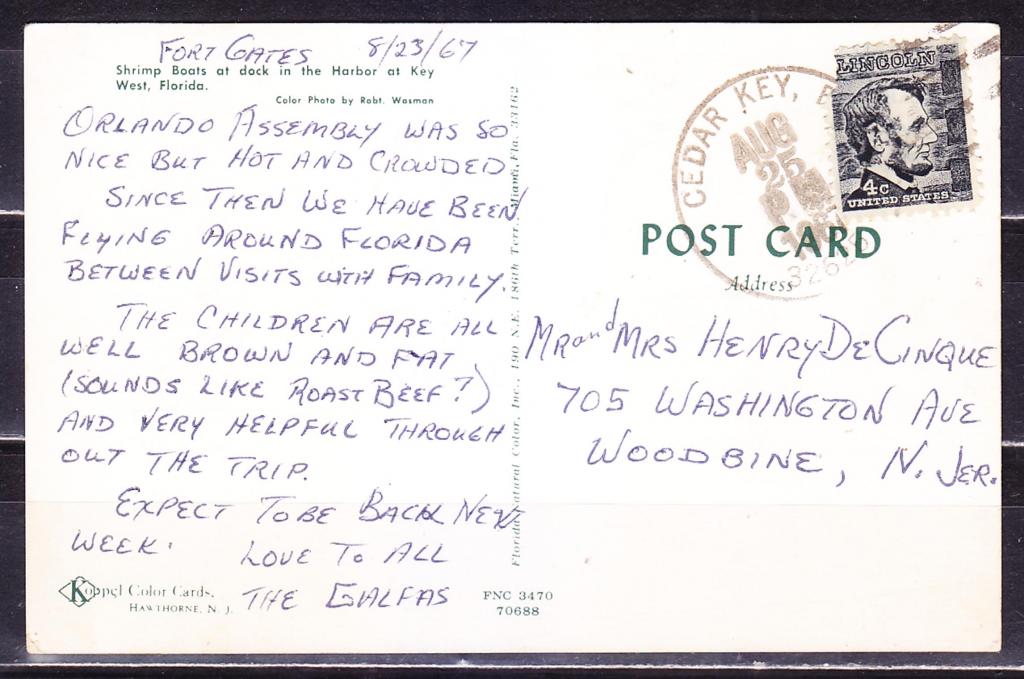 FORT GATES 8/23/67
Shrimp Boats at dock in the Harbor at Key
West, Florida.
Color Photo by Robt. Wasman
ORLANDO ASSEMBLY WAS SO
NICE BUT HOT AND CROWDED
SINCE THEN WE HAVE BEEN
FLYING AROUND FLORIDA
BETWEEN VISITS WITH FAMILY.
THE CHILDREN ARE ALL
WELL BROWN AND FAT
(SOUNDS LIKE ROAST BEEF?)
AND VERY HELPFUL THROUGH
OUT THE TRIP.
EXPECT TO BE BACK NEXT
WEEK. LOVE TO ALL
THE GALFAS
Koppel Color Cards.
HAWTHORNE, N. J.
FNC 3470
70688
Florida Natural Color, Inc., 190 N.E. 186th Terr. Miami, Fla. 33162
CEDAR KEY,
AUG
25
PM
LINCOLN
4c
UNITED STATES
POST CARD
Address
MR and MRS HENRY DE CINQUE
705 WASHINGTON AVE
WOODBINE, N. JER.